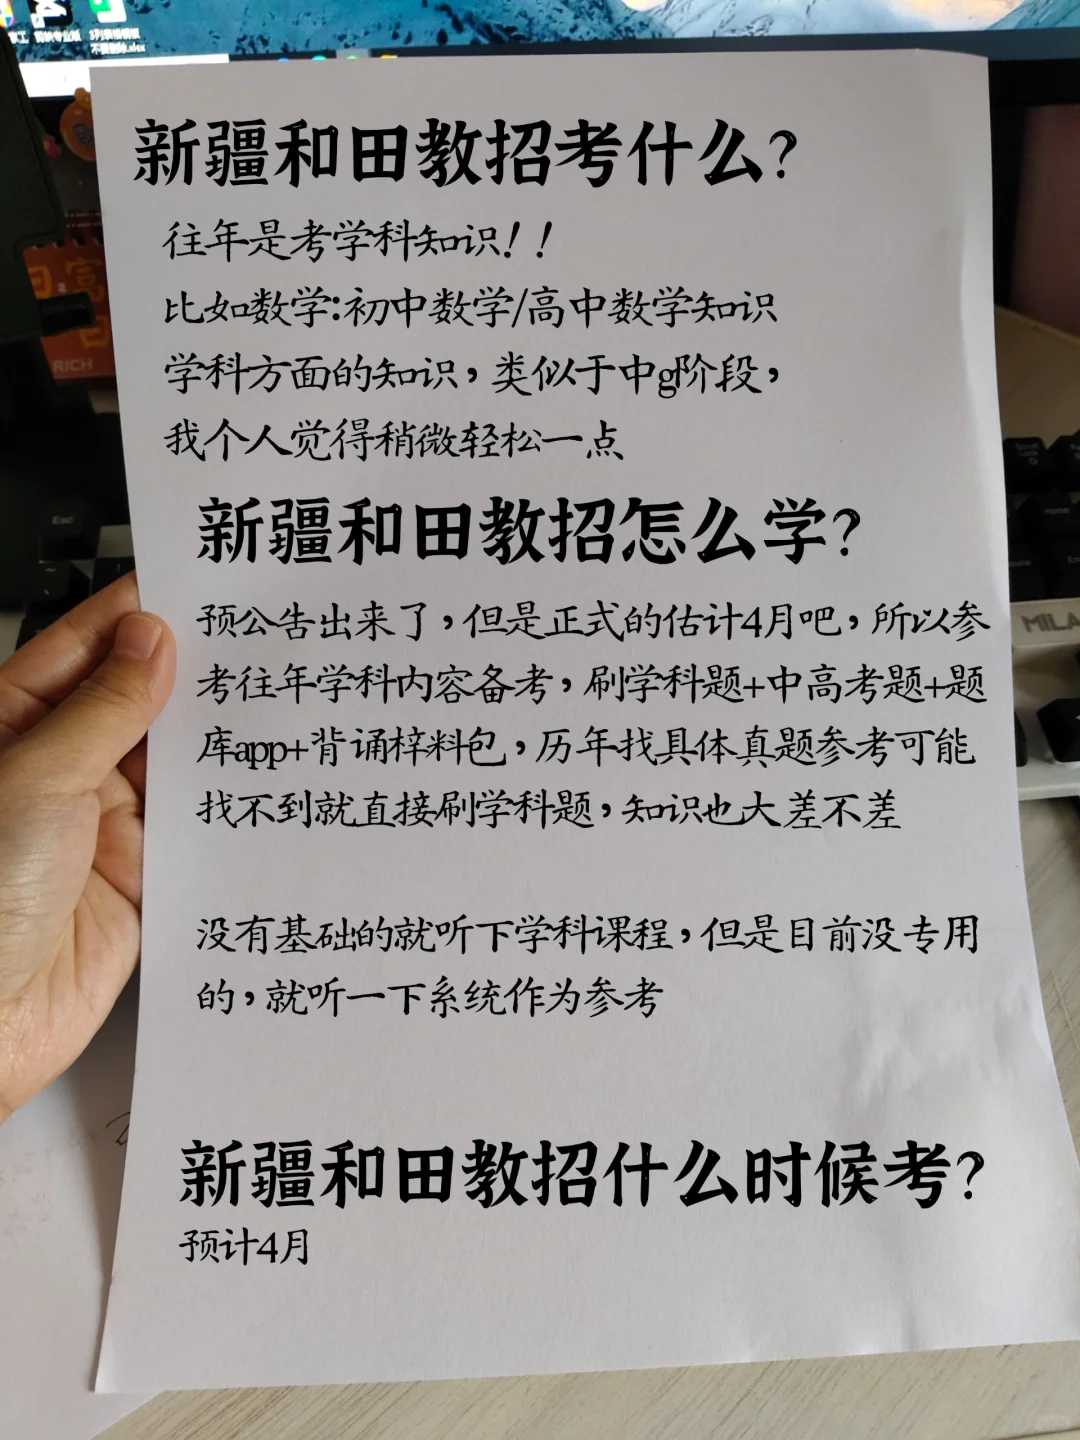 新疆和田教招考什么?
往年是考学科知识!!
比如数学:初中数学/高中数学知识
学科方面的知识,类似于中g阶段,
我个人觉得稍微轻松一点
新疆和田教招怎么学?
预公告出来了,但是正式的估计4月吧,所以参
考往年学科内容备考,刷学科题+中高考题+题
库app+背诵梓料包,历年找具体真题参考可能
找不到就直接刷学科题,知识也大差不差
没有基础的就听下学科课程,但是目前没专用
的,就听一下系统作为参考
新疆和田教招什么时候考?
预计4月
RICH
Esc